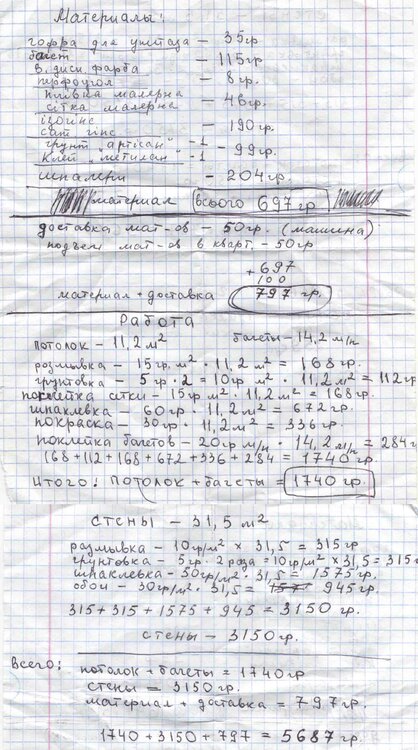 Материалы:
гофра для унитаза – 35гр
багет – 115гр
в. дисп. фарба
перфоугол – 8гр.
плівка малярна
сітка малярна – 46гр.
ізогипс
сат гіпс – 190гр.
грунт "артісан" -1
клей "метилан" -1 – 99гр.
шпалери – 204гр.
материал всього 697гр
доставка мат-ов – 50гр. (машина)
подъем мат-ов в кварт. – 50гр
+697
100
материал + доставка 797гр.
Работа
потолок – 11,2 м² багеты – 14,2 м/п
размывка – 15гр. м² · 11,2 м² = 168гр.
грунтовка – 5гр · 2 = 10гр м² · 11,2 м² = 112гр
поклейка сетки – 15гр м² · 11,2 м² = 168гр.
шпаклевка – 60гр · 11,2 м² = 672гр
покраска – 30гр · 11,2 м² = 336гр.
поклейка багетов – 20гр м/п · 14,2 м/п = 284гр
168 + 112 + 168 + 672 + 336 + 284 = 1740гр.
Итого: потолок + багеты = 1740гр.
стены – 31,5 м²
размывка – 10гр/м² × 31,5 = 315гр
грунтовка – 5гр · 2 раза = 10гр/м² × 31,5 = 315г
шпаклевка – 50гр/м² · 31,5 = 1575гр.
обои – 30гр/м² · 31,5 = 945гр.
315 + 315 + 1575 + 945 = 3150гр.
стены – 3150гр.
Всего: потолок + багеты = 1740гр
стены = 3150гр.
материал + доставка = 797гр.
1740 + 3150 + 797 = 5687гр.